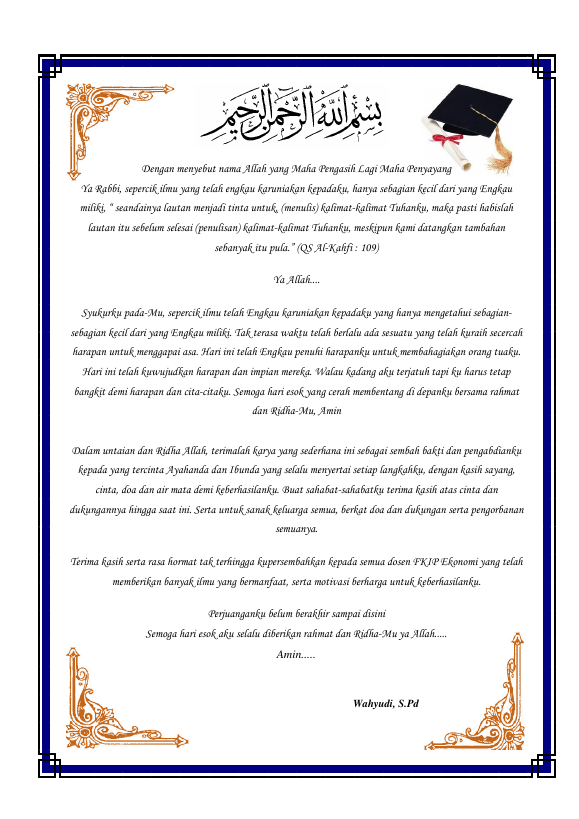 بسم الله الرحمن الرحيم
Dengan menyebut nama Allah yang Maha Pengasih Lagi Maha Penyayang
Ya Rabbi, sepercik ilmu yang telah engkau karuniakan kepadaku, hanya sebagian kecil dari yang Engkau
miliki, “ seandainya lautan menjadi tinta untuk, (menulis) kalimat-kalimat Tuhanku, maka pasti habislah
lautan itu sebelum selesai (penulisan) kalimat-kalimat Tuhanku, meskipun kami datangkan tambahan
sebanyak itu pula.” (QS Al-Kahfi : 109)
Ya Allah....
Syukurku pada-Mu, sepercik ilmu telah Engkau karuniakan kepadaku yang hanya mengetahui sebagian-
sebagian kecil dari yang Engkau miliki. Tak terasa waktu telah berlalu ada sesuatu yang telah kuraih secercah
harapan untuk menggapai asa. Hari ini telah Engkau penuhi harapanku untuk membahagiakan orang tuaku.
Hari ini telah kuwujudkan harapan dan impian mereka. Walau kadang aku terjatuh tapi ku harus tetap
bangkit demi harapan dan cita-citaku. Semoga hari esok yang cerah membentang di depanku bersama rahmat
dan Ridha-Mu, Amin
Dalam untaian dan Ridha Allah, terimalah karya yang sederhana ini sebagai sembah bakti dan pengabdianku
kepada yang tercinta Ayahanda dan Ibunda yang selalu menyertai setiap langkahku, dengan kasih sayang,
cinta, doa dan air mata demi keberhasilanku. Buat sahabat-sahabatku terima kasih atas cinta dan
dukungannya hingga saat ini. Serta untuk sanak keluarga semua, berkat doa dan dukungan serta pengorbanan
semuanya.
Terima kasih serta rasa hormat tak terhingga kupersembahkan kepada semua dosen FKIP Ekonomi yang telah
memberikan banyak ilmu yang bermanfaat, serta motivasi berharga untuk keberhasilanku.
Perjuanganku belum berakhir sampai disini
Semoga hari esok aku selalu diberikan rahmat dan Ridha-Mu ya Allah.....
Amin.....
Wahyudi, S.Pd